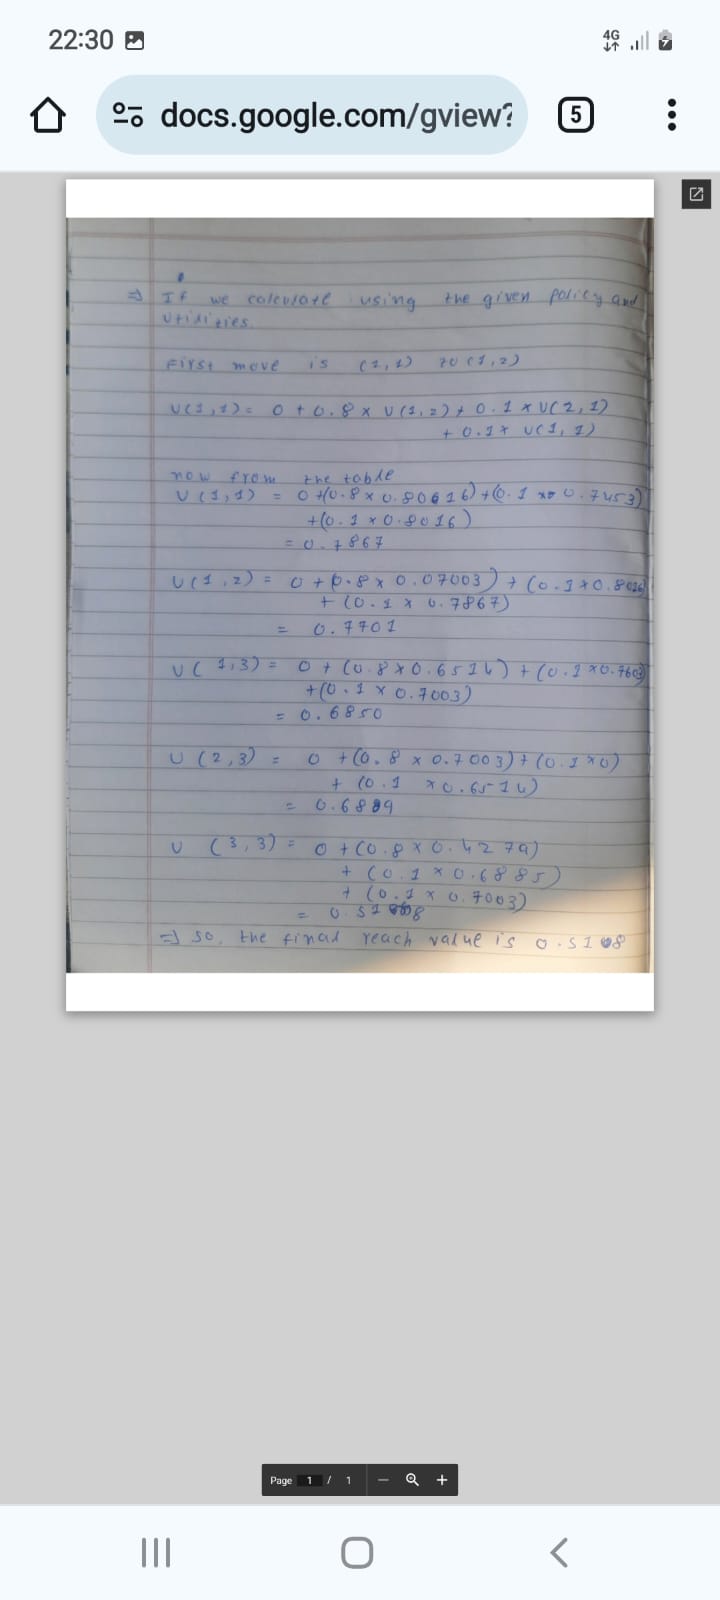 22:30
4G
docs.google.com/gview?
5
⇒ If we calculate using the given policy and
utilities.
First move is (1,1) to (1,2)
U(1,1) = 0 + 0.8 x U(1,2) + 0.1 x U(2,1)
+ 0.1 x U(1,1)
now from the table
U(1,1) = 0 +(0.8 x 0.80616) +(0.1 x 0.7453)
+(0.1 x 0.8016)
= 0.7867
U(1,2) = 0 + (0.8 x 0.07003) + (0.1 x 0.8016)
+ (0.1 x 0.7867)
= 0.7701
U(1,3) = 0 + (0.8 x 0.6514) + (0.1 x 0.7603)
+(0.1 x 0.7003)
= 0.6850
U(2,3) = 0 +(0.8 x 0.7003) + (0.1 x 0)
+ (0.1 x 0.6514)
= 0.6889
U(3,3) = 0 + (0.8 x 0.4279)
+ (0.1 x 0.6885)
+ (0.1 x 0.7003)
= 0.5108
⇒ so, the final reach value is 0.5108
Page 1 / 1